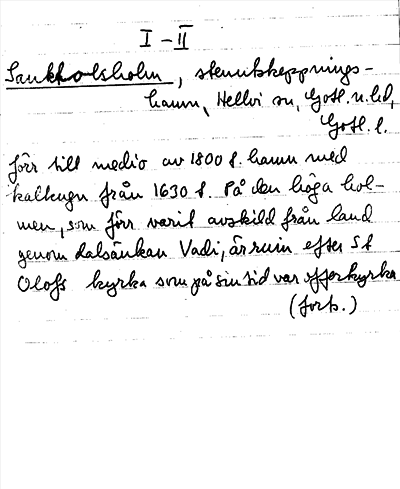 I - II
Sankt Olofsholm, stenutskeppnings-
hamn, Hellvi sn, Gotl. n. hd,
Gotl. l.
förr till medio av 1800 t. hamn med
kalkugn från 1630 t. På den höga hol-
men, som förr varit avskild från land
genom dalsänkan Vadi, är ruin efter St
Olofs kyrka som på sin tid var offerkyrka
(forts.)